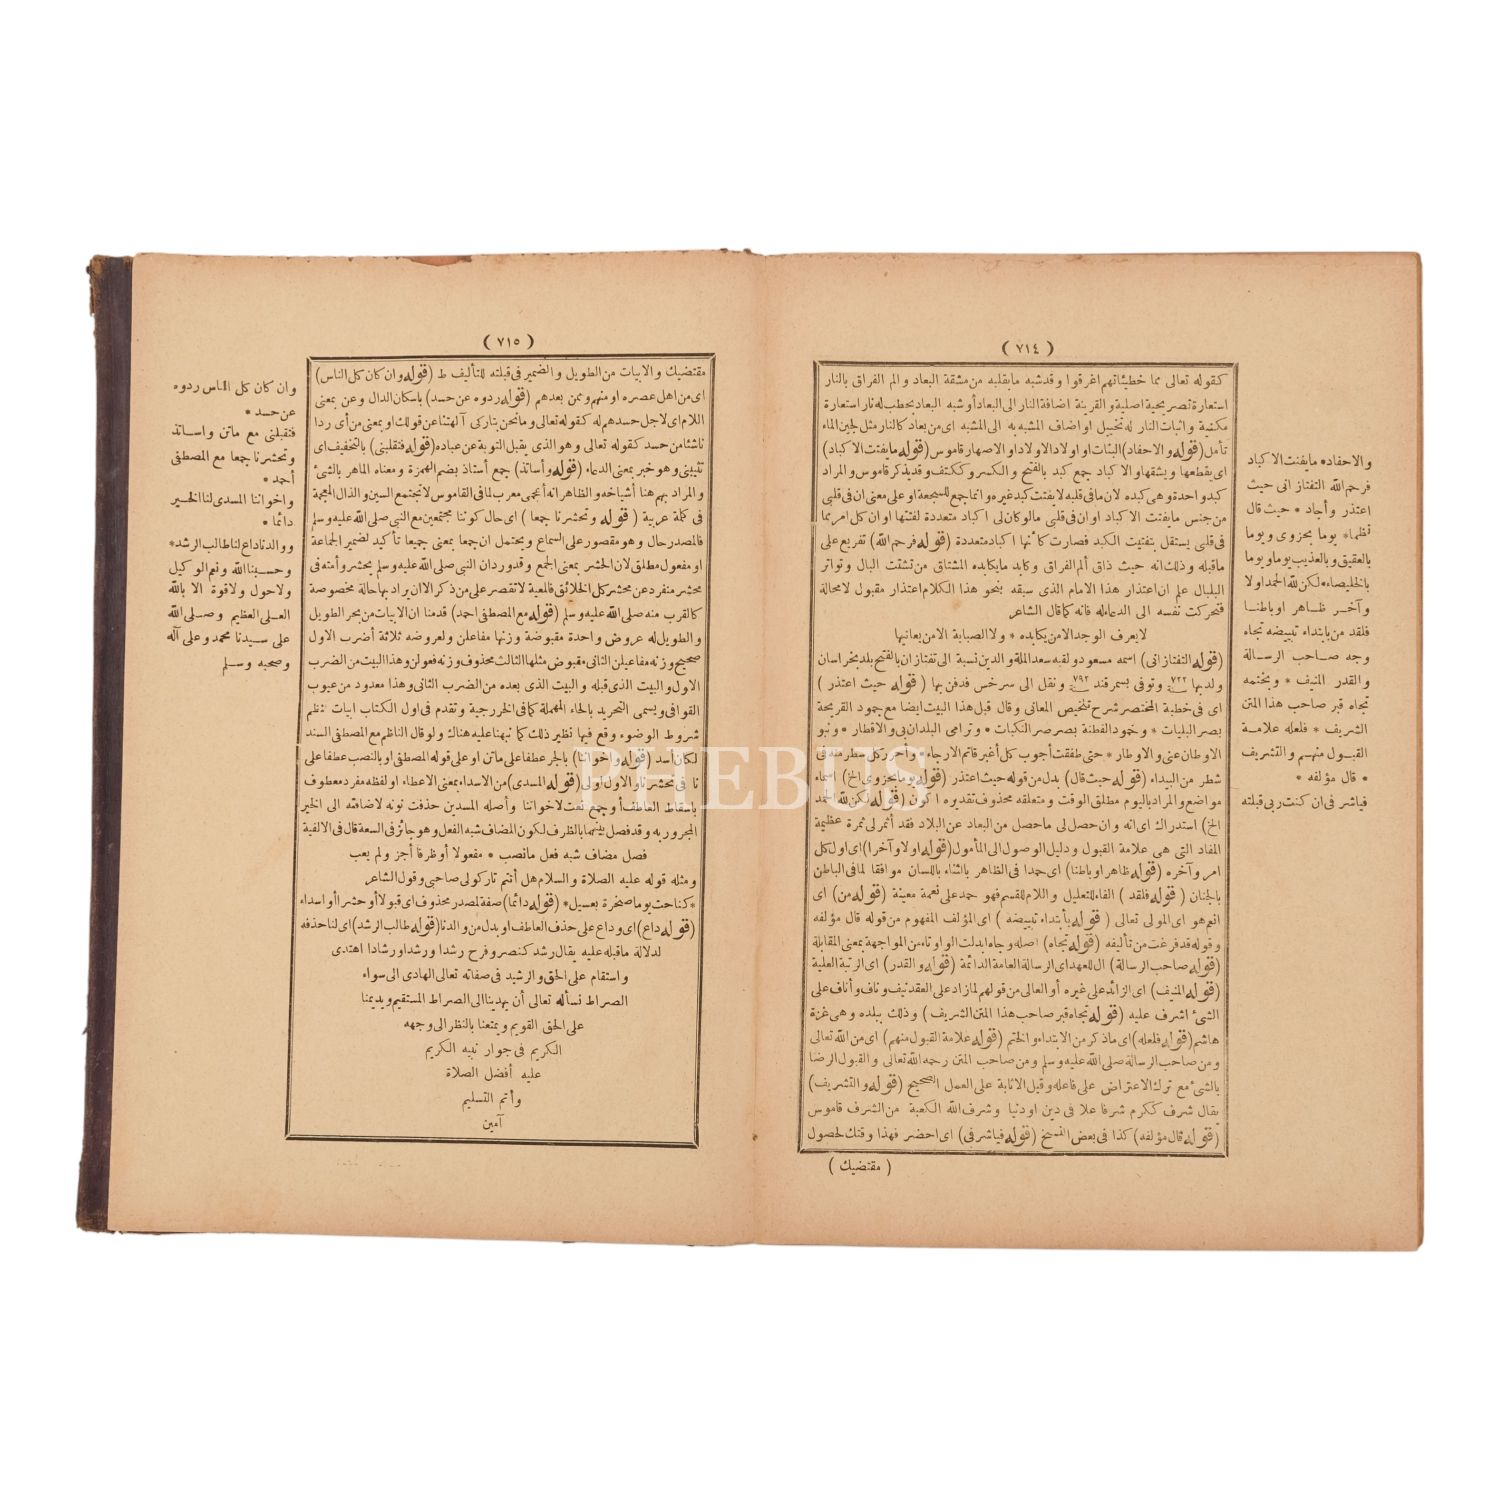 ( ٧١٤ )
كقوله تعالى مما خطيئاتهم اغرقوا وقد شبه ما بقلبه من مشقة البعاد والم الفراق بالنار
استعارة تصريحية اصلية والقرينة اضافة النار الى البعاد أو شبه البعاد بحطب له نار استعارة
مكنية واثبات النار له تخييل او اضاف المشبه به الى المشبه اى من بعاد كالنار مثل لجين الماء
تأمل (قوله والاحفاد) البنات او اولاد الاولاد او الاصهار قاموس (قوله ما يفتت الاكباد)
اى يقطعها ويشقها والاكباد جمع كبد بالفتح والكسر وككتف وقد يذكر قاموس والمراد
كبد واحدة وهى كبده لان ما فى قلبه لا يفتت كبد غيره وانما جمع للسجعة او على معنى ان فى قلبى
من جنس ما يفتت الاكباد او ان فى قلبى ما لو كان لى اكباد متعددة لفتتها او ان كل امر مما
فى قلبى يستقل بتفتيت الكبد فصارت كأنها اكباد متعددة (قوله فرحم الله) تفريع على
ماقبله وذلك انه حيث ذاق ألم الفراق وكابد ما يكابده المشتاق من تشتت البال وتواتر
البلبال علم ان اعتذار هذا الامام الذى سبقه بنحو هذا الكلام اعتذار مقبول لا محالة
فتحركت نفسه الى الدعاء له فانه كما قال الشاعر
لا يعرف الوجد الا من يكابده * ولا الصبابة الا من يعانيها
(قوله التفتازانى) اسمه مسعود ولقبه سعد الملة والدين نسبة الى تفتازان بالفتح بلد بخراسان
ولد بها ٧٢٢ وتوفى بسمرقند ٧٩٢ ونقل الى سرخس فدفن بها ( قوله حيث اعتذر )
اى فى خطبة المختصر شرح تلخيص المعانى وقال قبل هذا البيت ايضا مع جمود القريحة
بصر البليات * وخمود الفطنة بصرصر النكبات * وترامى البلدان بى والاقطار * ونبو
الاوطان عنى والاوطار * حتى طفقت أجوب كل أغبر قاتم الارجاء * وأحرر كل سطر منه فى
شطر من البيداء (قوله حيث قال) بدل من قوله حيث اعتذر (قوله يوما بحزوى الخ) اسماء
مواضع والمراد باليوم مطلق الوقت ومتعلقه محذوف تقديره اكون (قوله لكن لله الحمد
الخ) استدراك اى انه وان حصل لى ما حصل من البعاد عن البلاد فقد أثمر لى ثمرة عظيمة
المفاد التى هى علامة القبول ودليل الوصول الى المأمول (قوله اولا وآخرا) اى اول كل
امر وآخره (قوله ظاهر اوباطنا) اى حمدا فى الظاهر بالثناء باللسان موافقا لما فى الباطن
بالجنان ( قوله فلقد ) الفاء للتعليل واللام للقسم فهو حمد على نعمة معينة (قوله من) اى
انعم هو اى المولى تعالى ( قوله بابتداء تبييضه ) اى المؤلف المفهوم من قوله قال مؤلفه
وقوله قد فرغت من تأليفه (قوله تجاه) اصله وجاه ابدلت الواو تاء من المواجهة بمعنى المقابلة
(قوله صاحب الرسالة) ال للعهد اى الرسالة العامة الدائمة (قوله والقدر) اى الرتبة العلية
(قوله المنيف) اى الزائد على غيره أو العالى من قولهم لما زاد على العقد نيف وناف وأناف على
الشئ اشرف عليه (قوله تجاه قبر صاحب هذا المتن الشريف ) وذلك ببلده وهى غزة
هاشم (قوله فلعله) اى ماذكر من الابتداء والختم (قوله علامة القبول منهم) اى من الله تعالى
ومن صاحب الرسالة صلى الله عليه وسلم ومن صاحب المتن رحمه الله تعالى والقبول الرضا
بالشئ مع ترك الاعتراض على فاعله وقيل الاثابة على العمل الصحيح (قوله والتشريف)
يقال شرف ككرم شرفا علا فى دين او دنيا وشرف الله الكعبة من الشرف قاموس
(قوله قال مؤلفه) كذا فى بعض النسخ (قوله فياشرفى) اى احضر فهذا وقتك لحصول
( مقتضيك )
والاحفاد* مايفتت الاكباد
فرحم الله التفتازانى حيث
اعتذر وأجاد * حيث قال
نظما* يوما بحزوى ويوما
بالعقيق وبالعذيب يوما ويوما
بالخليصاء* لكن لله الحمد اولا
وآخر ظاهر اوباطنا
فلقد من بابتداء تبييضه تجاه
وجه صاحب الرسالة
والقدر المنيف * وبختمه
تجاه قبر صاحب هذا المتن
الشريف * فلعله علامة
القبول منهم والتشريف
* قال مؤلفه *
فياشرفى ان كنت ربى قبلته
( ٧١٥ )
مقتضيك والابيات من الطويل والضمير فى قبلته للتأليف ط (قوله وان كان كل الناس)
اى من اهل عصره او منهم وممن بعدهم (قوله ردوه عن حسد) باسكان الدال وعن بمعنى
اللام اى لاجل حسدهم له كقوله تعالى وما نحن بتاركى آلهتنا عن قولك او بمعنى من أى ردا
ناشئا من حسد كقوله تعالى وهو الذى يقبل التوبة عن عباده (قوله فتقبلنى) بالتخفيف اى
تثيبنى وهو خبر بمعنى الدعاء (قوله وأساتذ) جمع أستاذ بضم الهمزة ومعناه الماهر بالشئ
والمراد بهم هنا أشياخه والظاهر انه أعجمى معرب لما فى القاموس لا تجتمع السين والذال المعجمة
فى كلمة عربية ( قوله وتحشرنا جمعا ) اى حال كوننا مجتمعين مع النبى صلى الله عليه وسلم
فالمصدر حال وهو مقصور على السماع ويحتمل ان جمعا بمعنى جميعا تأكيد لضمير الجماعة
او مفعول مطلق لان الحشر بمعنى الجمع وقد ورد ان النبى صلى الله عليه وسلم يحشر وأمته فى
محشر منفرد عن محشر كل الخلائق فالمعية لا تقصر على من ذكر الا ان يراد بها حالة مخصوصة
كالقرب منه صلى الله عليه وسلم (قوله مع المصطفى احمد) قدمنا ان الابيات من بحر الطويل
والطويل له عروض واحدة مقبوضة وزنها مفاعلن ولعروضه ثلاثة أضرب الاول
صحيح وزنه مفاعيلن الثانى مقبوض مثلها الثالث محذوف وزنه فعولن وهذا البيت من الضرب
الاول والبيت الذى قبله والبيت الذى بعده من الضرب الثانى وهذا معدود من عيوب
القوافى ويسمى التحريد بالحاء المهملة كما فى الخزرجية وتقدم فى اول الكتاب ابيات نظم
شروط الوضوء وقع فيها نظير ذلك كما نبهنا عليه هناك ولو قال الناظم مع المصطفى السند
لكان أسد (قوله واخواننا) بالجر عطفا على ماتن او على قوله المصطفى او بالنصب عطفا على
نا فى تحشرنا والاول اولى (قوله المسدى) من الاسداء بمعنى الاعطاء او لفظه مفرد معطوف
باسقاط العاطف أو جمع نعت لاخواننا وأصله المسدين حذفت نونه لاضافته الى الخير
المجرور به وقد فصل بينهما بالظرف لكون المضاف شبه الفعل وهو جائز فى السعة قال فى الالفية
فصل مضاف شبه فعل مانصب * مفعولا أو ظرفا أجز ولم يعب
ومثله قوله عليه الصلاة والسلام هل أنتم تاركو لى صاحبى وقول الشاعر
*كناحت يوما صخرة بعسيل* (قوله دائما) صفة لمصدر محذوف اى قبولا أو حشرا أو اسداء
(قوله داع) اى وداع على حذف العاطف او بدل من والدنا (قوله طالب الرشد) اى لنا حذفه
لدلالة ماقبله عليه يقال رشد كنصر وفرح رشدا ورشدا ورشادا اهتدى
واستقام على الحق والرشيد فى صفاته تعالى الهادى الى سواء
الصراط نسأله تعالى أن يهدينا الى الصراط المستقيم ويديمنا
على الحق القويم ويمتعنا بالنظر الى وجهه
الكريم فى جوار نبيه الكريم
عليه أفضل الصلاة
وأتم التسليم
آمين
وان كان كل الناس ردوه
عن حسد *
فتقبلنى مع ماتن واساتذ
وتحشرنا جمعا مع المصطفى
أحمد *
واخواننا المسدى لنا الخير
دائما *
ووالدنا داع لنا طالب الرشد*
وحسبنا الله ونعم الوكيل
ولاحول ولاقوة الا بالله
العلى العظيم وصلى الله
على سيدنا محمد وعلى آله
وصحبه وسلم
PHEBUS